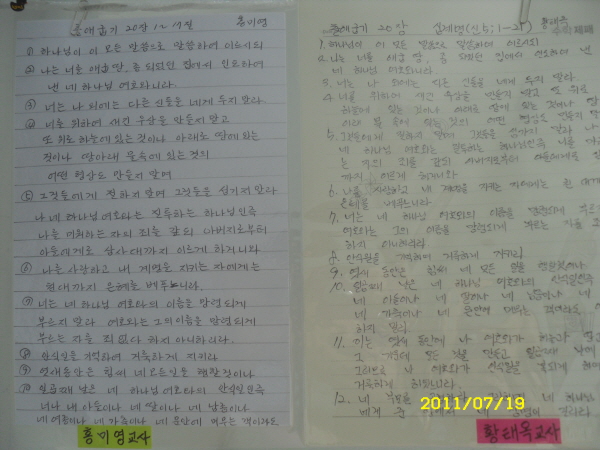 출애굽기 20장 1~17절 홍미영
① 하나님이 이 모든 말씀으로 말씀하여 이르시되
② 나는 너를 애굽 땅, 종 되었던 집에서 인도하여
낸 네 하나님 여호와니라.
③ 너는 나 외에는 다른 신들을 네게 두지 말라.
④ 너를 위하여 새긴 우상을 만들지 말고
또 위로 하늘에 있는 것이나 아래로 땅에 있는
것이나 땅 아래 물 속에 있는 것의
어떤 형상도 만들지 말며
⑤ 그것들에게 절하지 말며 그것들을 섬기지 말라
나 네 하나님 여호와는 질투하는 하나님인즉
나를 미워하는 자의 죄를 갚되 아버지로부터
아들에게로 삼사 대까지 이르게 하거니와
⑥ 나를 사랑하고 내 계명을 지키는 자에게는
천 대까지 은혜를 베푸느니라.
⑦ 너는 네 하나님 여호와의 이름을 망령되게
부르지 말라 여호와는 그의 이름을 망령되게
부르는 자를 죄 없다 하지 아니하리라
⑧ 안식일을 기억하여 거룩하게 지키라
⑨ 엿새 동안은 힘써 네 모든 일을 행할 것이나
⑩ 일곱째 날은 네 하나님 여호와의 안식일인즉
너나 네 아들이나 네 딸이나 네 남종이나
네 여종이나 네 가축이나 네 문안에 머무는 객이라도
홍미영교사
출애굽기 20장 십계명(신5:1-21) 황태옥
1. 하나님이 이 모든 말씀으로 말씀하여 이르시되
2. 나는 너를 애굽 땅, 종 되었던 집에서 인도하여 낸
네 하나님 여호와니라
3. 너는 나 외에는 다른 신들을 네게 두지 말라
4. 너를 위하여 새긴 우상을 만들지 말고 또 위로
하늘에 있는 것이나 아래로 땅에 있는 것이나 땅
아래 물 속에 있는 것의 어떤 형상도 만들지 말며
5. 그것들에게 절하지 말며 그것들을 섬기지 말라 나
네 하나님 여호와는 질투하는 하나님인즉 나를
는 자의 죄를 갚되 아버지로부터 아들에게로
까지 이르게 하거니와
6. 나를 사랑하고 내 계명을 지키는 자에게는 천 대까지
은혜를 베푸느니라
7. 너는 네 하나님 여호와의 이름을 망령되게 부르지
여호와는 그의 이름을 망령되게 부르는 자를 죄
하지 아니하리라
8. 안식일을 기억하여 거룩하게 지키라
9. 엿새 동안은 힘써 네 모든 일을 행할 것이나
10. 일곱째 날은 네 하나님 여호와의 안식일인즉
네 아들이나 네 딸이나 네 남종이나 네
네 가축이나 네 문안에 머무는 객이라도
하지 말라
11. 이는 엿새 동안에 나 여호와가 하늘과 땅과
그 가운데 모든 것을 만들고 일곱째 날에
그러므로 나 여호와가 안식일을 복되게 하여
거룩하게 하였느니라
12. 네 부모를
네게 준
황태옥교사
2011/07/19